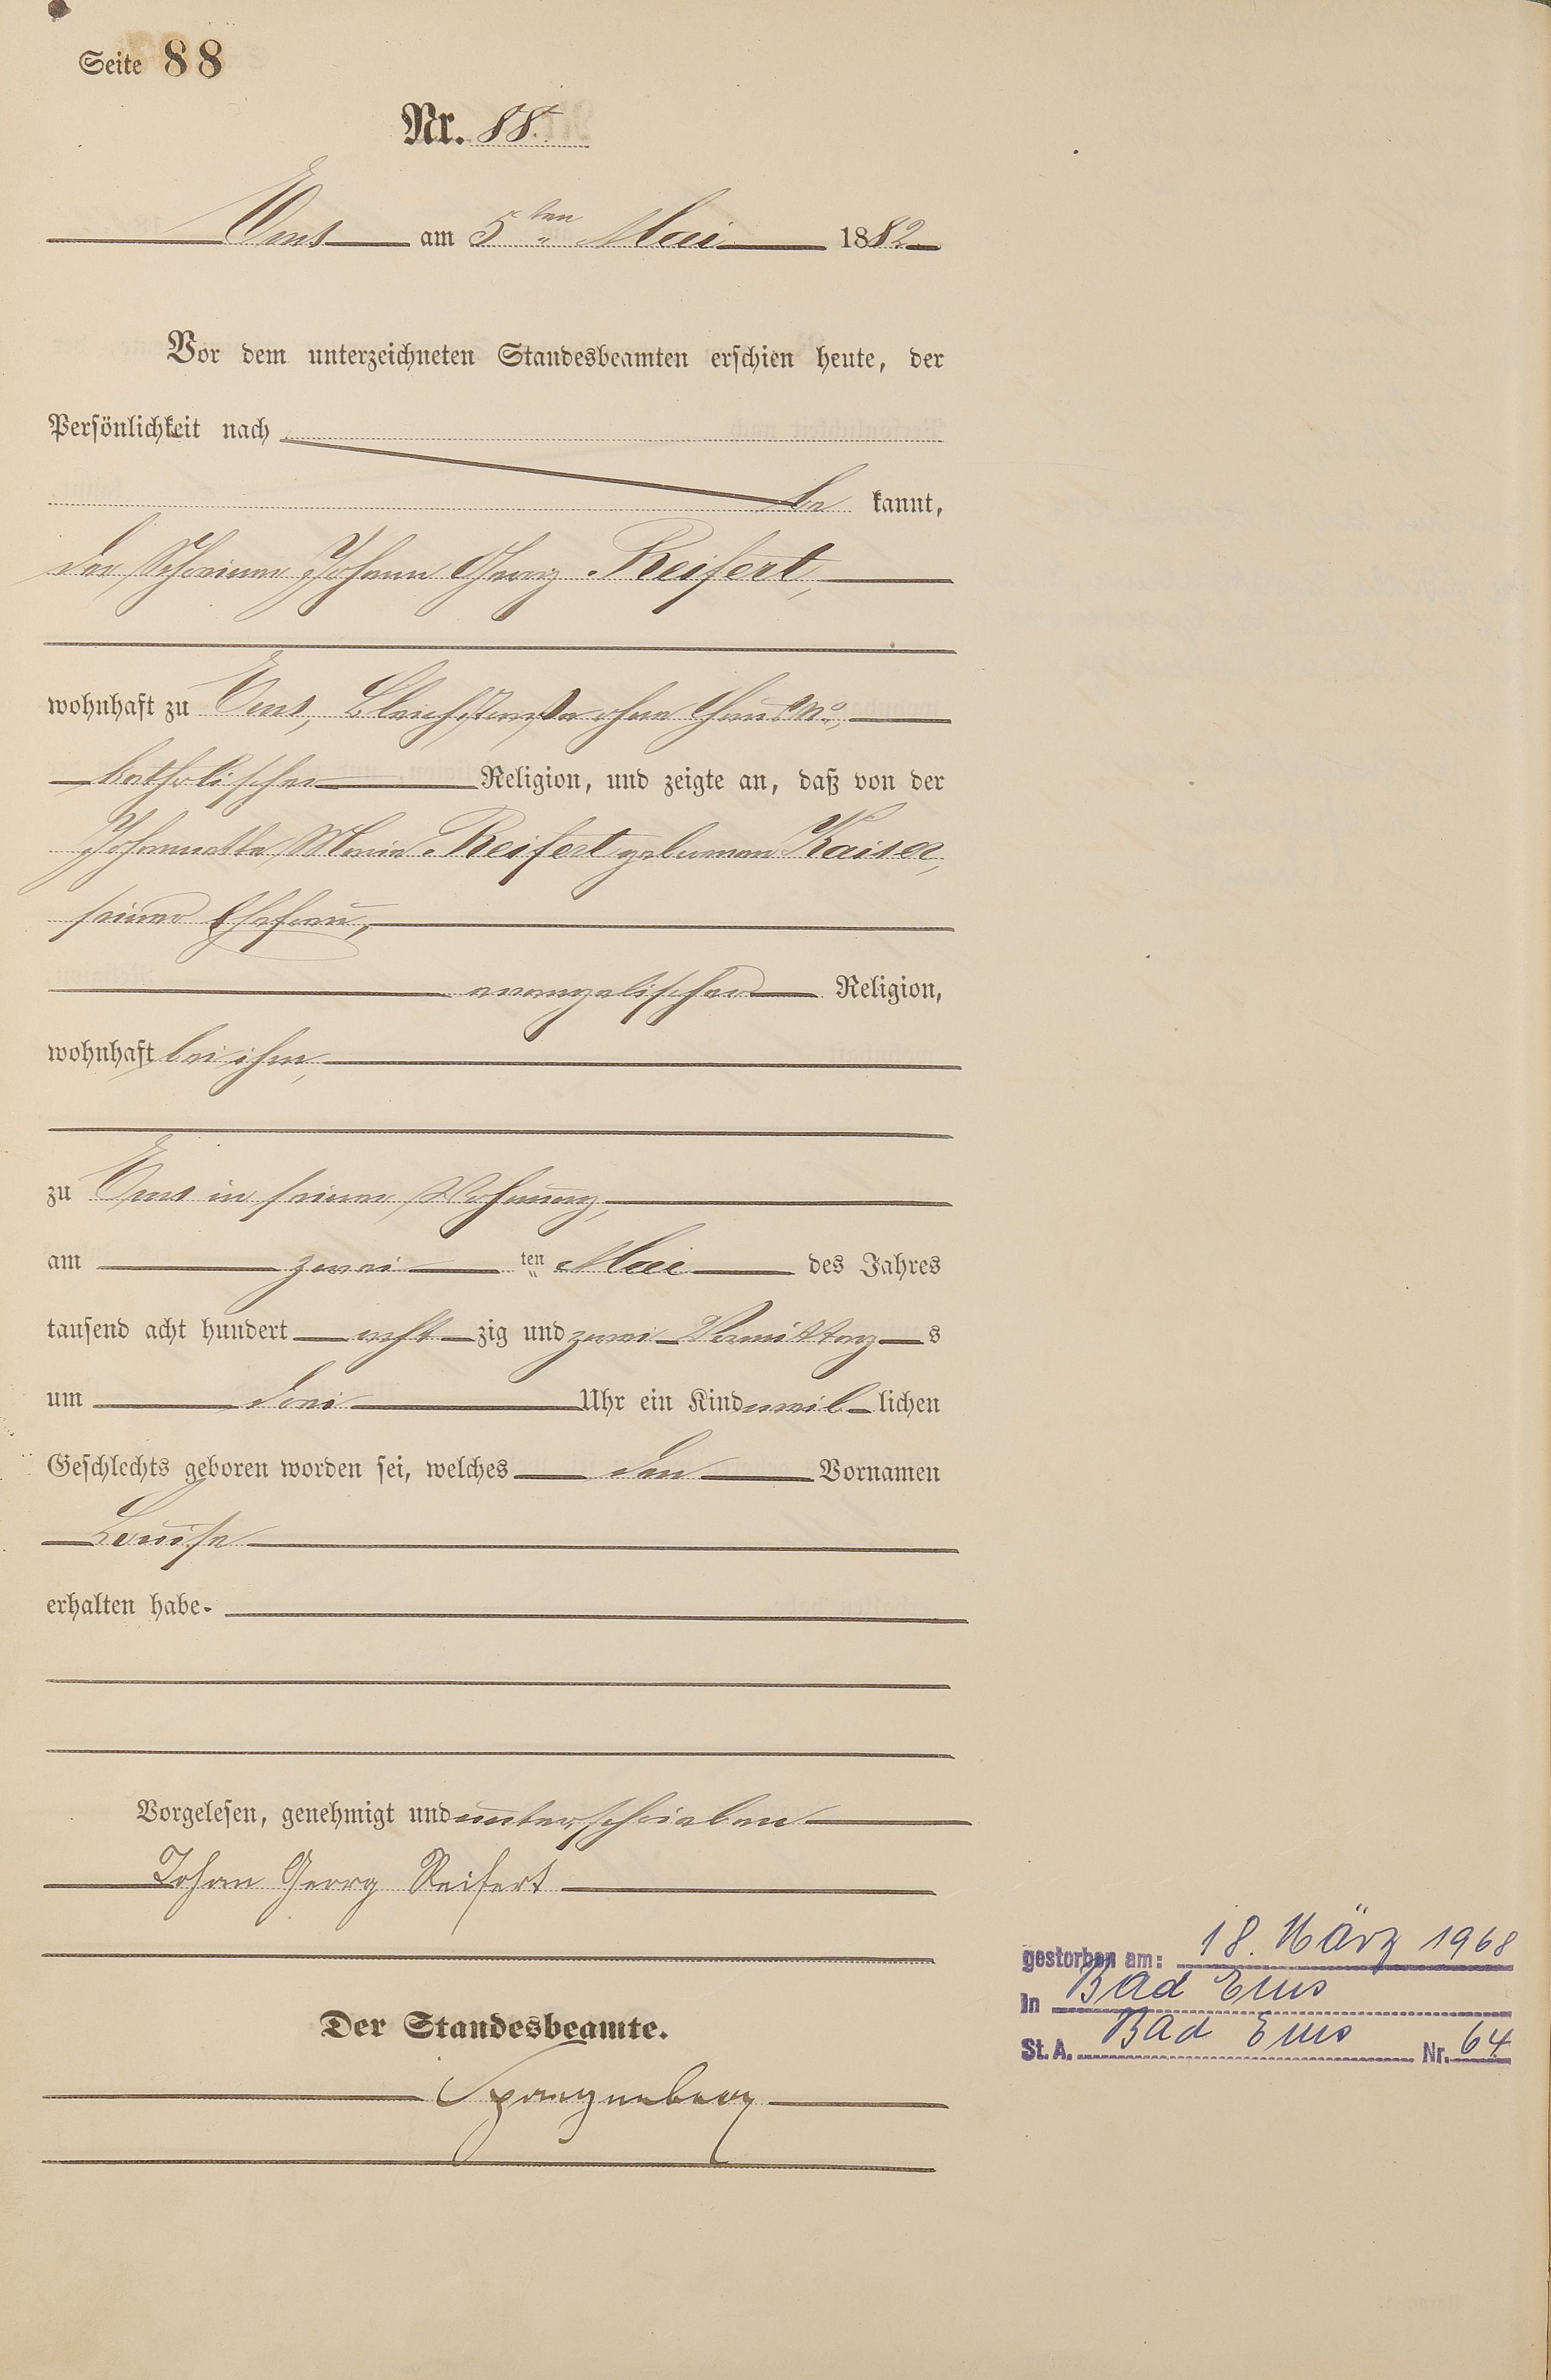 Seite 88
Nr. 88.
Ems am 5ten Mai 1882
Vor dem unterzeichneten Standesbeamten erschien heute, der
Persönlichkeit nach
be kannt,
der Schreiner Johann Georg Reifert,
wohnhaft zu Ems, Bleichstraße ohne Haus No.,
katholischer Religion, und zeigte an, daß von der
Johannette Maria Reifert geborenen Kaiser,
seiner Ehefrau,
evangelischer Religion,
wohnhaft bei ihm,
zu Ems in seiner Wohnung,
am zwei ten Mai des Jahres
tausend acht hundert acht zig und zwei Vormittag s
um drei Uhr ein Kind weib lichen
Geschlechts geboren worden sei, welches den Vornamen
Louise
erhalten habe.
Vorgelesen, genehmigt und unterschrieben
Johan Georg Reifert
Der Standesbeamte.
Spangenberg
gestorben am: 18. März 1968
In Bad Ems
St. A. Bad Ems Nr. 64